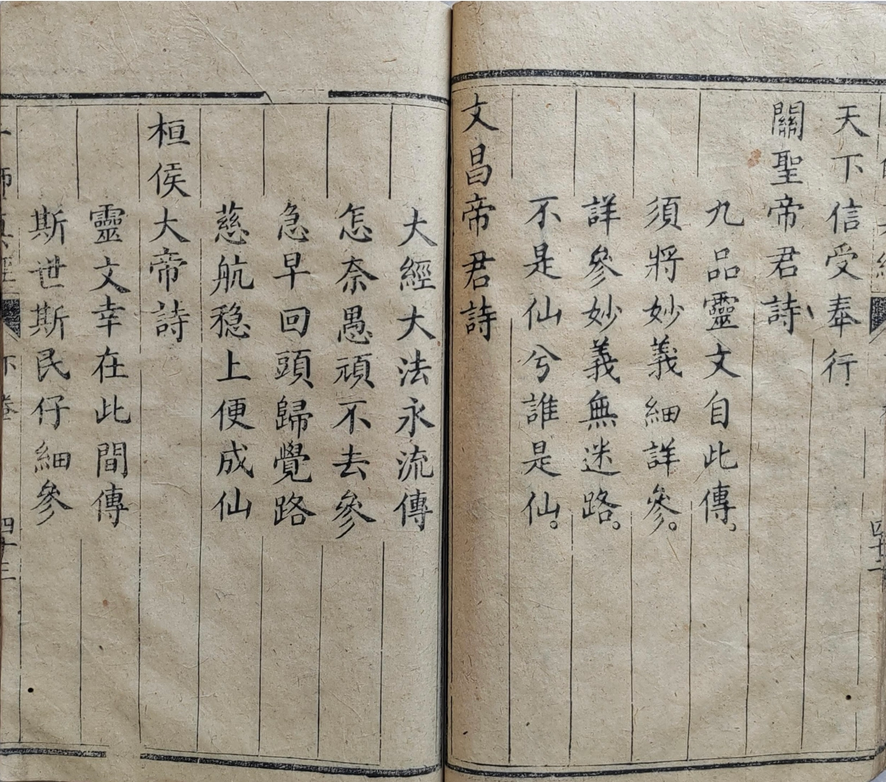 天下信受奉行
關聖帝君詩
九品靈文自此傳。
須將妙義細詳參。
詳參妙義無迷路。
不是仙兮誰是仙。
文昌帝君詩
大經大法永流傳
怎奈愚頑不去參
急早回頭歸覺路
慈航稳上便成仙
桓侯大帝詩
靈文幸在此間傳
斯世斯民仔細參
下卷
四十三